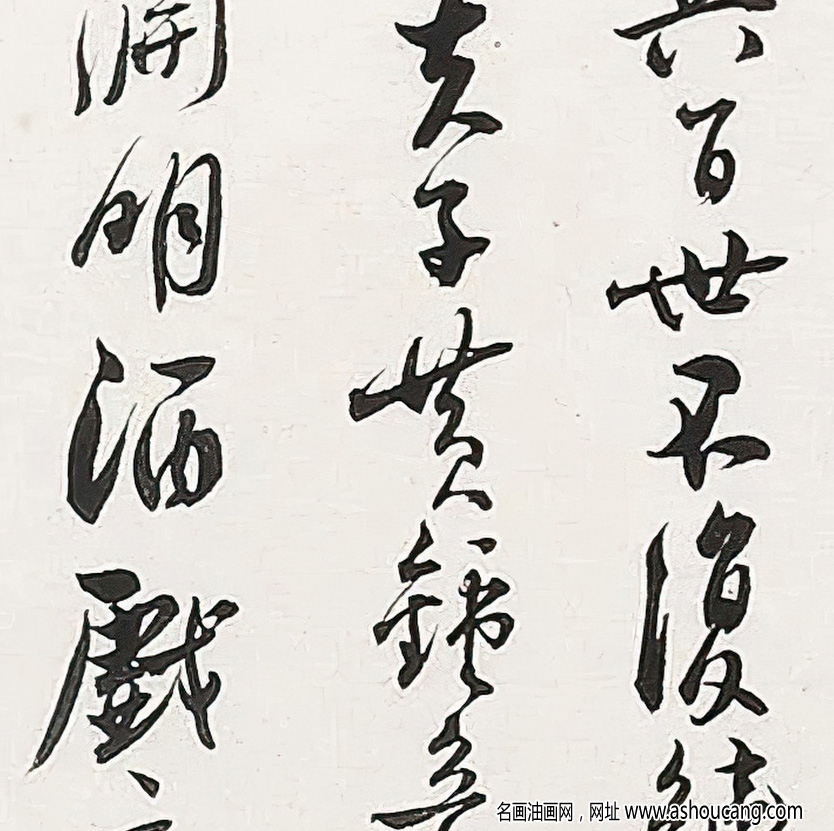 百世不復
夫子黄鍾
淵明酒戲
名画油画网，网址 www.ashoucang.com